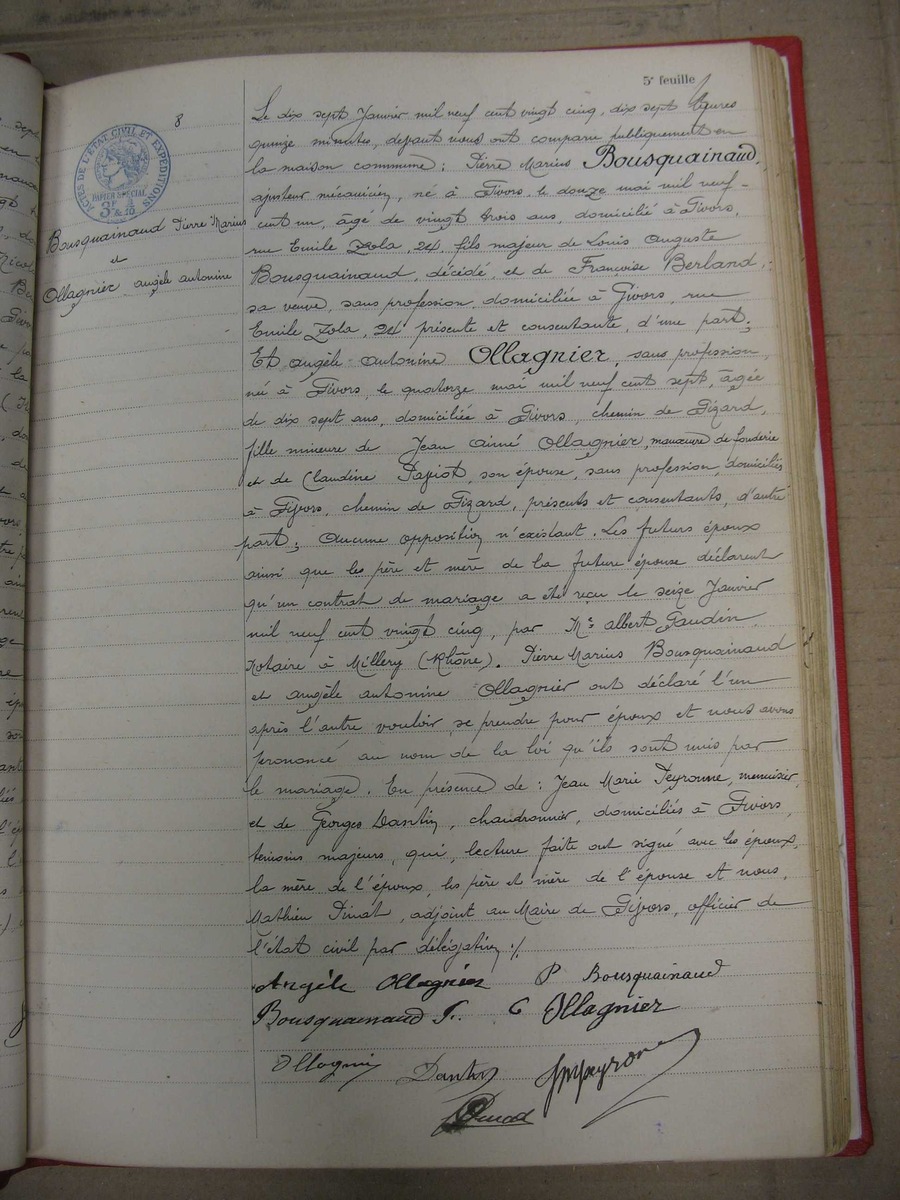 5e feuille
8
ACTES DE L'ETAT CIVIL ET EXPEDITIONS
PAPIER SPECIAL
Bousquainaud Pierre Marius
et
Ollagnier angèle antonine
Le dix sept Janvier mil neuf cent vingt cinq, dix sept heures
quinze minutes, devant nous ont comparu publiquement en
la maison commune : Pierre Marius Bousquainaud,
ajusteur mécanicien, né à Givors, le douze mai mil neuf
cent un, âgé de vingt trois ans, domicilié à Givors,
rue Emile Zola, 24, fils majeur de Louis Auguste
Bousquainaud, décédé, et de Françoise Berland,
sa veuve, sans profession, domiciliée à Givors, rue
Emile Zola, 24 présente et consentante, d'une part;
Et angèle antonine Ollagnier, sans profession,
née à Givors, le quatorze mai mil neuf cent sept, âgée
de dix sept ans, domiciliée à Givors, chemin de Gizard,
fille mineure de Jean aimé Ollagnier, manœuvre de fonderie
et de Claudine son épouse, sans profession, domiciliés
à Givors, chemin de Gizard, présents et consentants, d'autre
part; Aucune opposition n'existant. Les futurs époux
ainsi que les père et mère de la future épouse déclarent
qu'un contrat de mariage a été reçu le seize Janvier
mil neuf cent vingt cinq, par Me albert Gaudin,
Notaire à Millery (Rhône). Pierre Marius Bousquainaud
et angèle antonine Ollagnier ont déclaré l'un
après l'autre vouloir se prendre pour époux et nous avons
prononcé au nom de la loi qu'ils sont unis par
le mariage. En présence de : Jean Marie Peyronne, menuisier,
et de Georges Dantin, chaudronnier, domiciliés à Givors,
témoins majeurs, qui, lecture faite ont signé avec les époux,
la mère de l'époux, les père et mère de l'épouse et nous,
Mathieu adjoint au Maire de Givors, officier de
l'état civil par délégation ./.
Angèle Ollagnier P Bousquainaud
Bousquainaud F. C Ollagnier